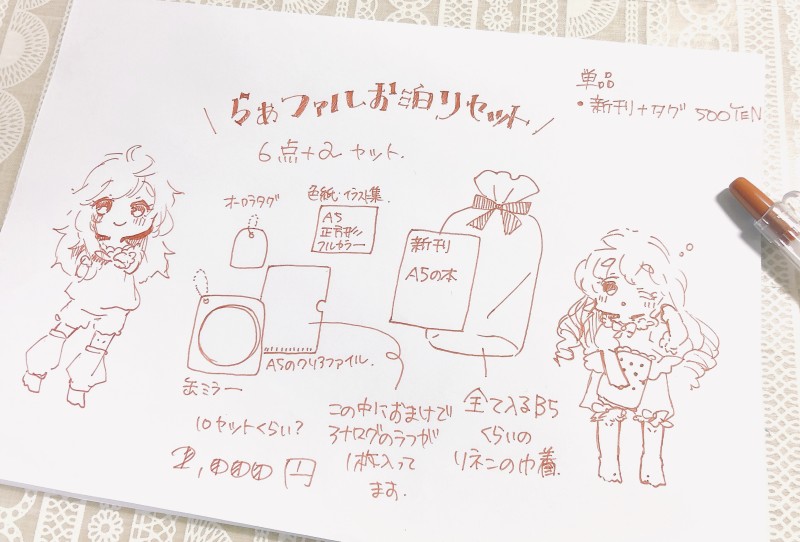 らぁファルお泊りセット
6点+αセット.
単品
・新刊+タグ 500YEN
オーロラタグ
色紙・イラスト集.
A5
正方形
フルカラー
新刊
A5の本
A5のクリアファイル.
缶ミラー
10セットくらい?
2,000円
この中におまけで
アナログのラフが
1枚入って
ます.
全て入るB5
くらいの
リネンの巾着.